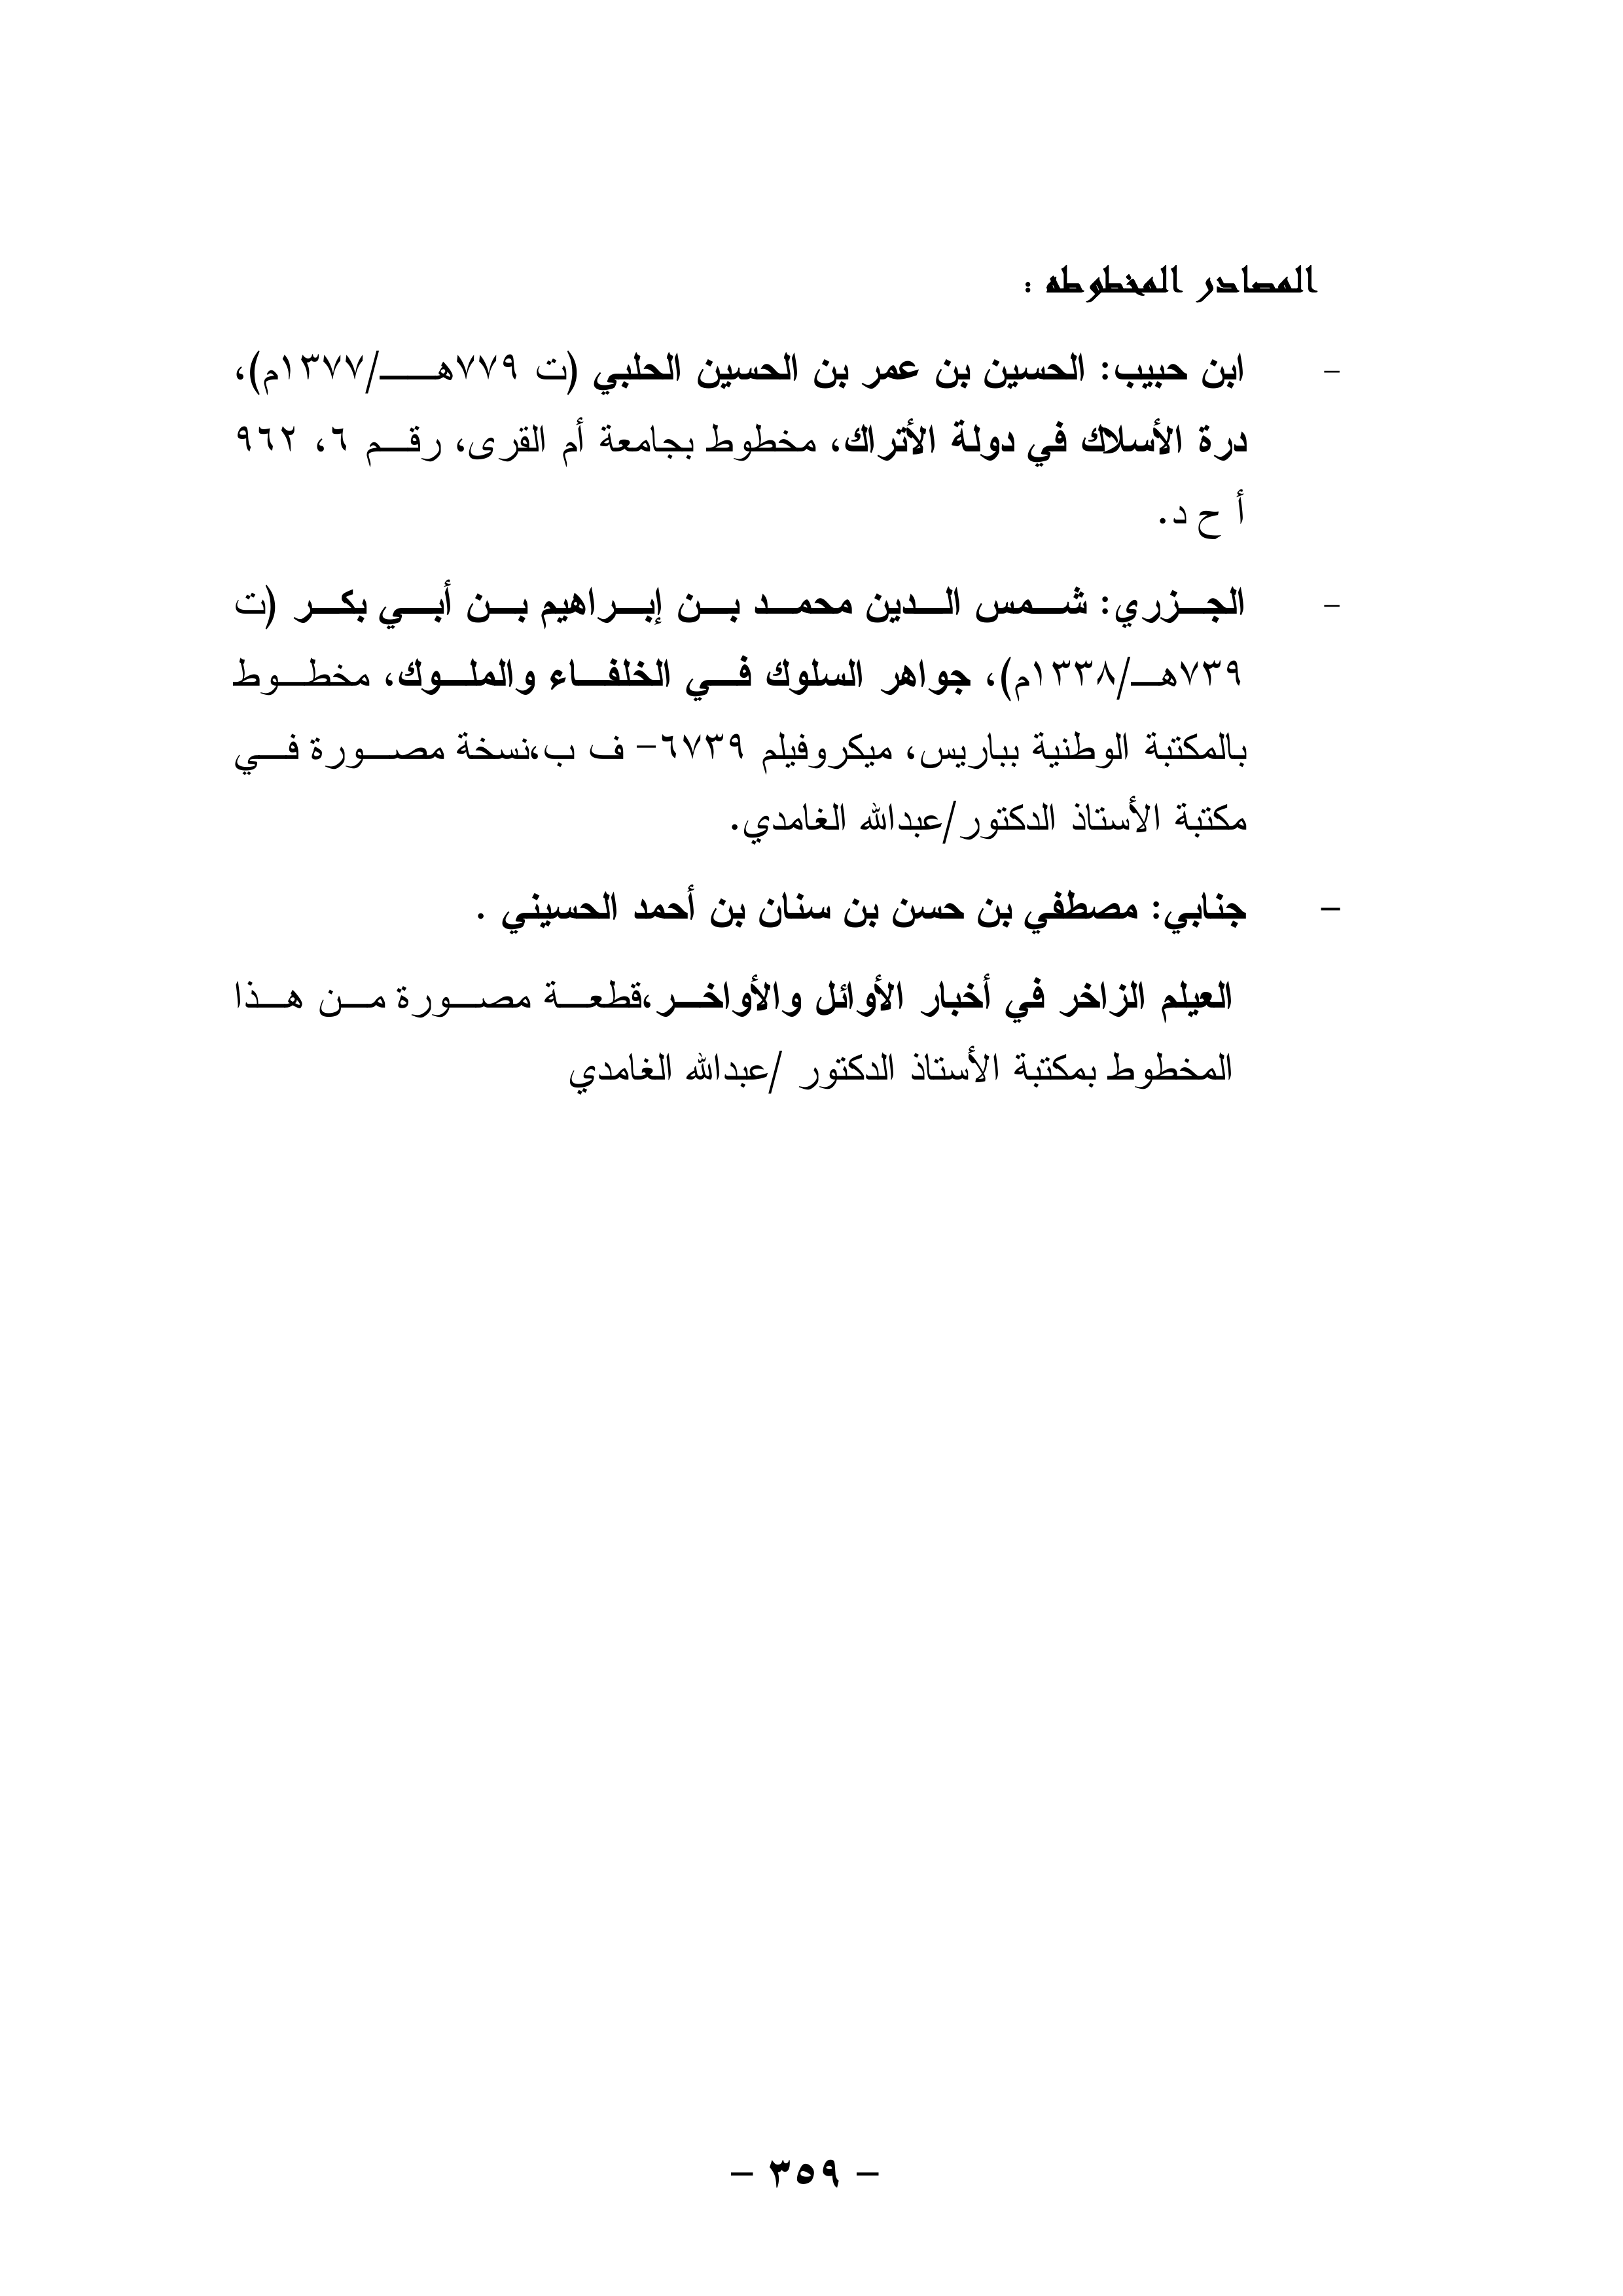 المصادر المخطوطه :
- ابن حبيب: الحسين بن عمر بن الحسين الحلبي (ت ٧٧٩هـ/١٣٧٧م)،
درة الأسلاك في دولة الأتراك، مخطوط بجامعة أم القرى، رقم ٦، ٩٦٢
أ ح د.
- الجزري: شمس الدين محمد بن إبراهيم بن أبي بكر (ت
٧٣٩هـ/١٣٣٨م)، جواهر السلوك في الخلفاء والملوك، مخطوط
بالمكتبة الوطنية بباريس، ميكروفيلم ٦٧٣٩- ف ب،نسخة مصورة في
مكتبة الأستاذ الدكتور/عبدالله الغامدي.
- جنابي: مصطفي بن حسن بن سنان بن أحمد الحسيني .
العيلم الزاخر في أخبار الأوائل والأواخر،قطعة مصورة من هذا
المخطوط بمكتبة الأستاذ الدكتور /عبدالله الغامدي
- ٣٥٩ -